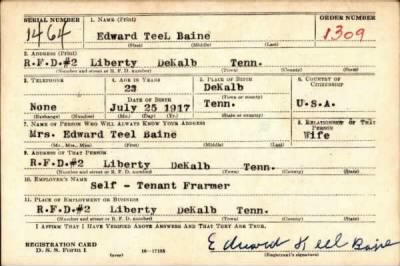 SERIAL NUMBER 1. NAME (Print) ORDER NUMBER
1464 Edward TeeL Baine 1309
(First) (Middle) (Last)
2. ADDRESS (Print)
R.F.D.#2 Liberty DeKalb Tenn.
(Number and street or R. F. D. number) (Town) (County) (State)
3. TELEPHONE 4. AGE IN YEARS 5. PLACE OF BIRTH 6. COUNTRY OF CITIZENSHIP
23 DeKalb
DATE OF BIRTH (Town or county)
None July 25 1917 Tenn. U.S.A.
(Exchange) (Number) (Mo.) (Day) (Yr.) (State or country)
7. NAME OF PERSON WHO WILL ALWAYS KNOW YOUR ADDRESS 8. RELATIONSHIP OF THAT PERSON
Mrs. Edward Teel Baine Wife
(Mr., Mrs., Miss) (First) (Middle) (Last)
9. ADDRESS OF THAT PERSON
R.F.D.#2 Liberty DeKalb Tenn.
(Number and street or R. F. D. number) (Town) (County) (State)
10. EMPLOYER'S NAME
Self - Tenant Frarmer
11. PLACE OF EMPLOYMENT OR BUSINESS
R.F.D.#2 Liberty DeKalb Tenn.
(Number and street or R. F. D. number) (Town) (County) (State)
I AFFIRM THAT I HAVE VERIFIED ABOVE ANSWERS AND THAT THEY ARE TRUE.
REGISTRATION CARD Edward Teel Baine
D. S. S. Form 1 (over) 16-17105 (Registrant's signature)